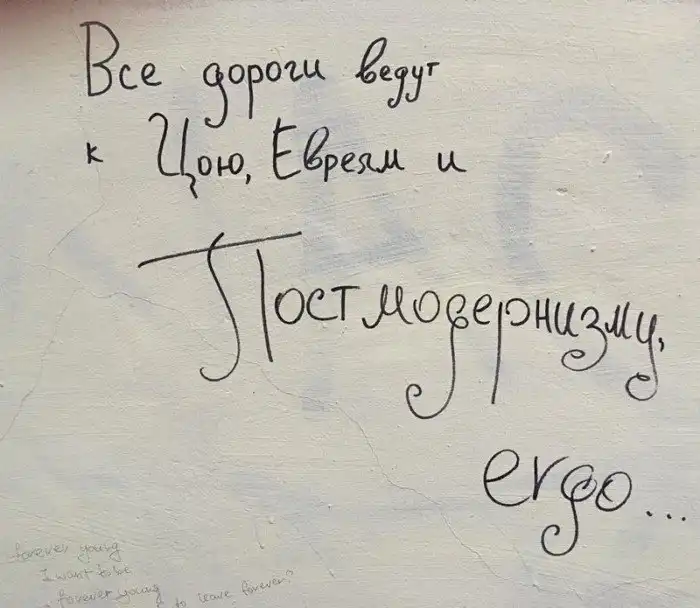 Все дороги ведут
к Цою, Евреям и
Постмодернизму,
ergo...
forever young
I want to be
forever young
to leave forever?